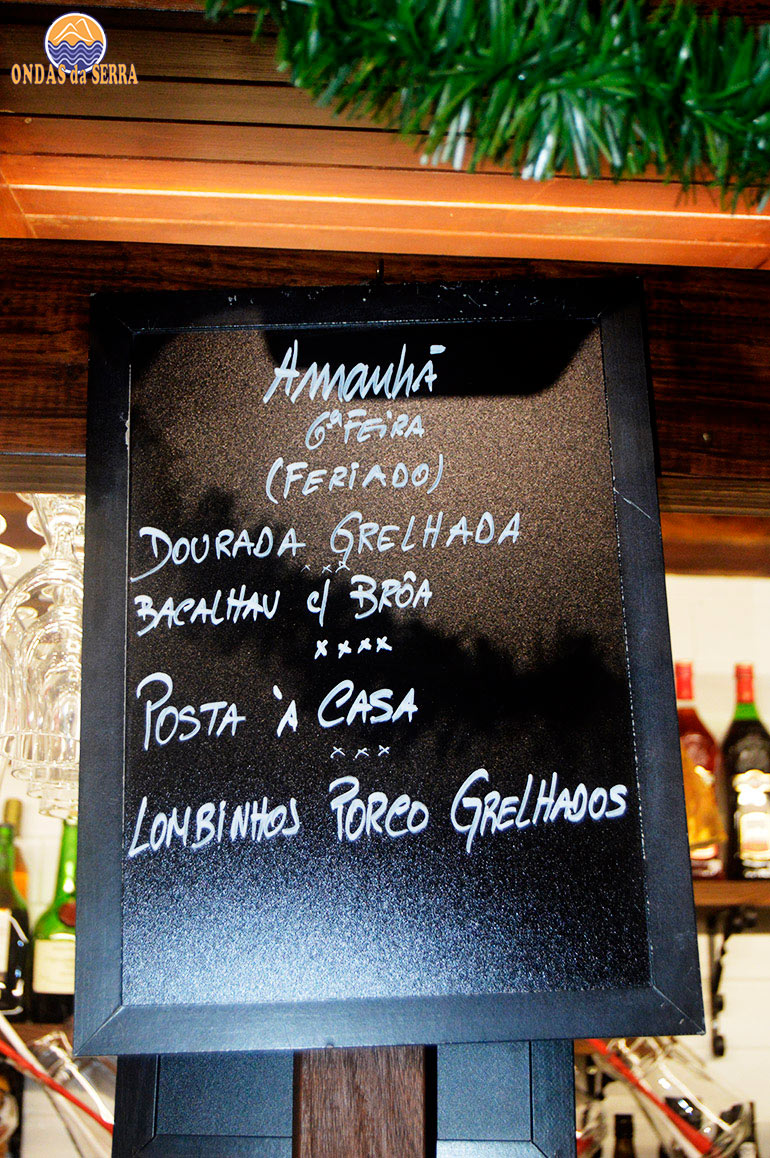 ONDAS da SERRA
Amanhã
6ª FEIRA
(FERIADO)
DOURADA GRELHADA
x x x
BACALHAU c/ BRÔA
x x x x
POSTA À CASA
x x x
LOMBINHOS PORCO GRELHADOS